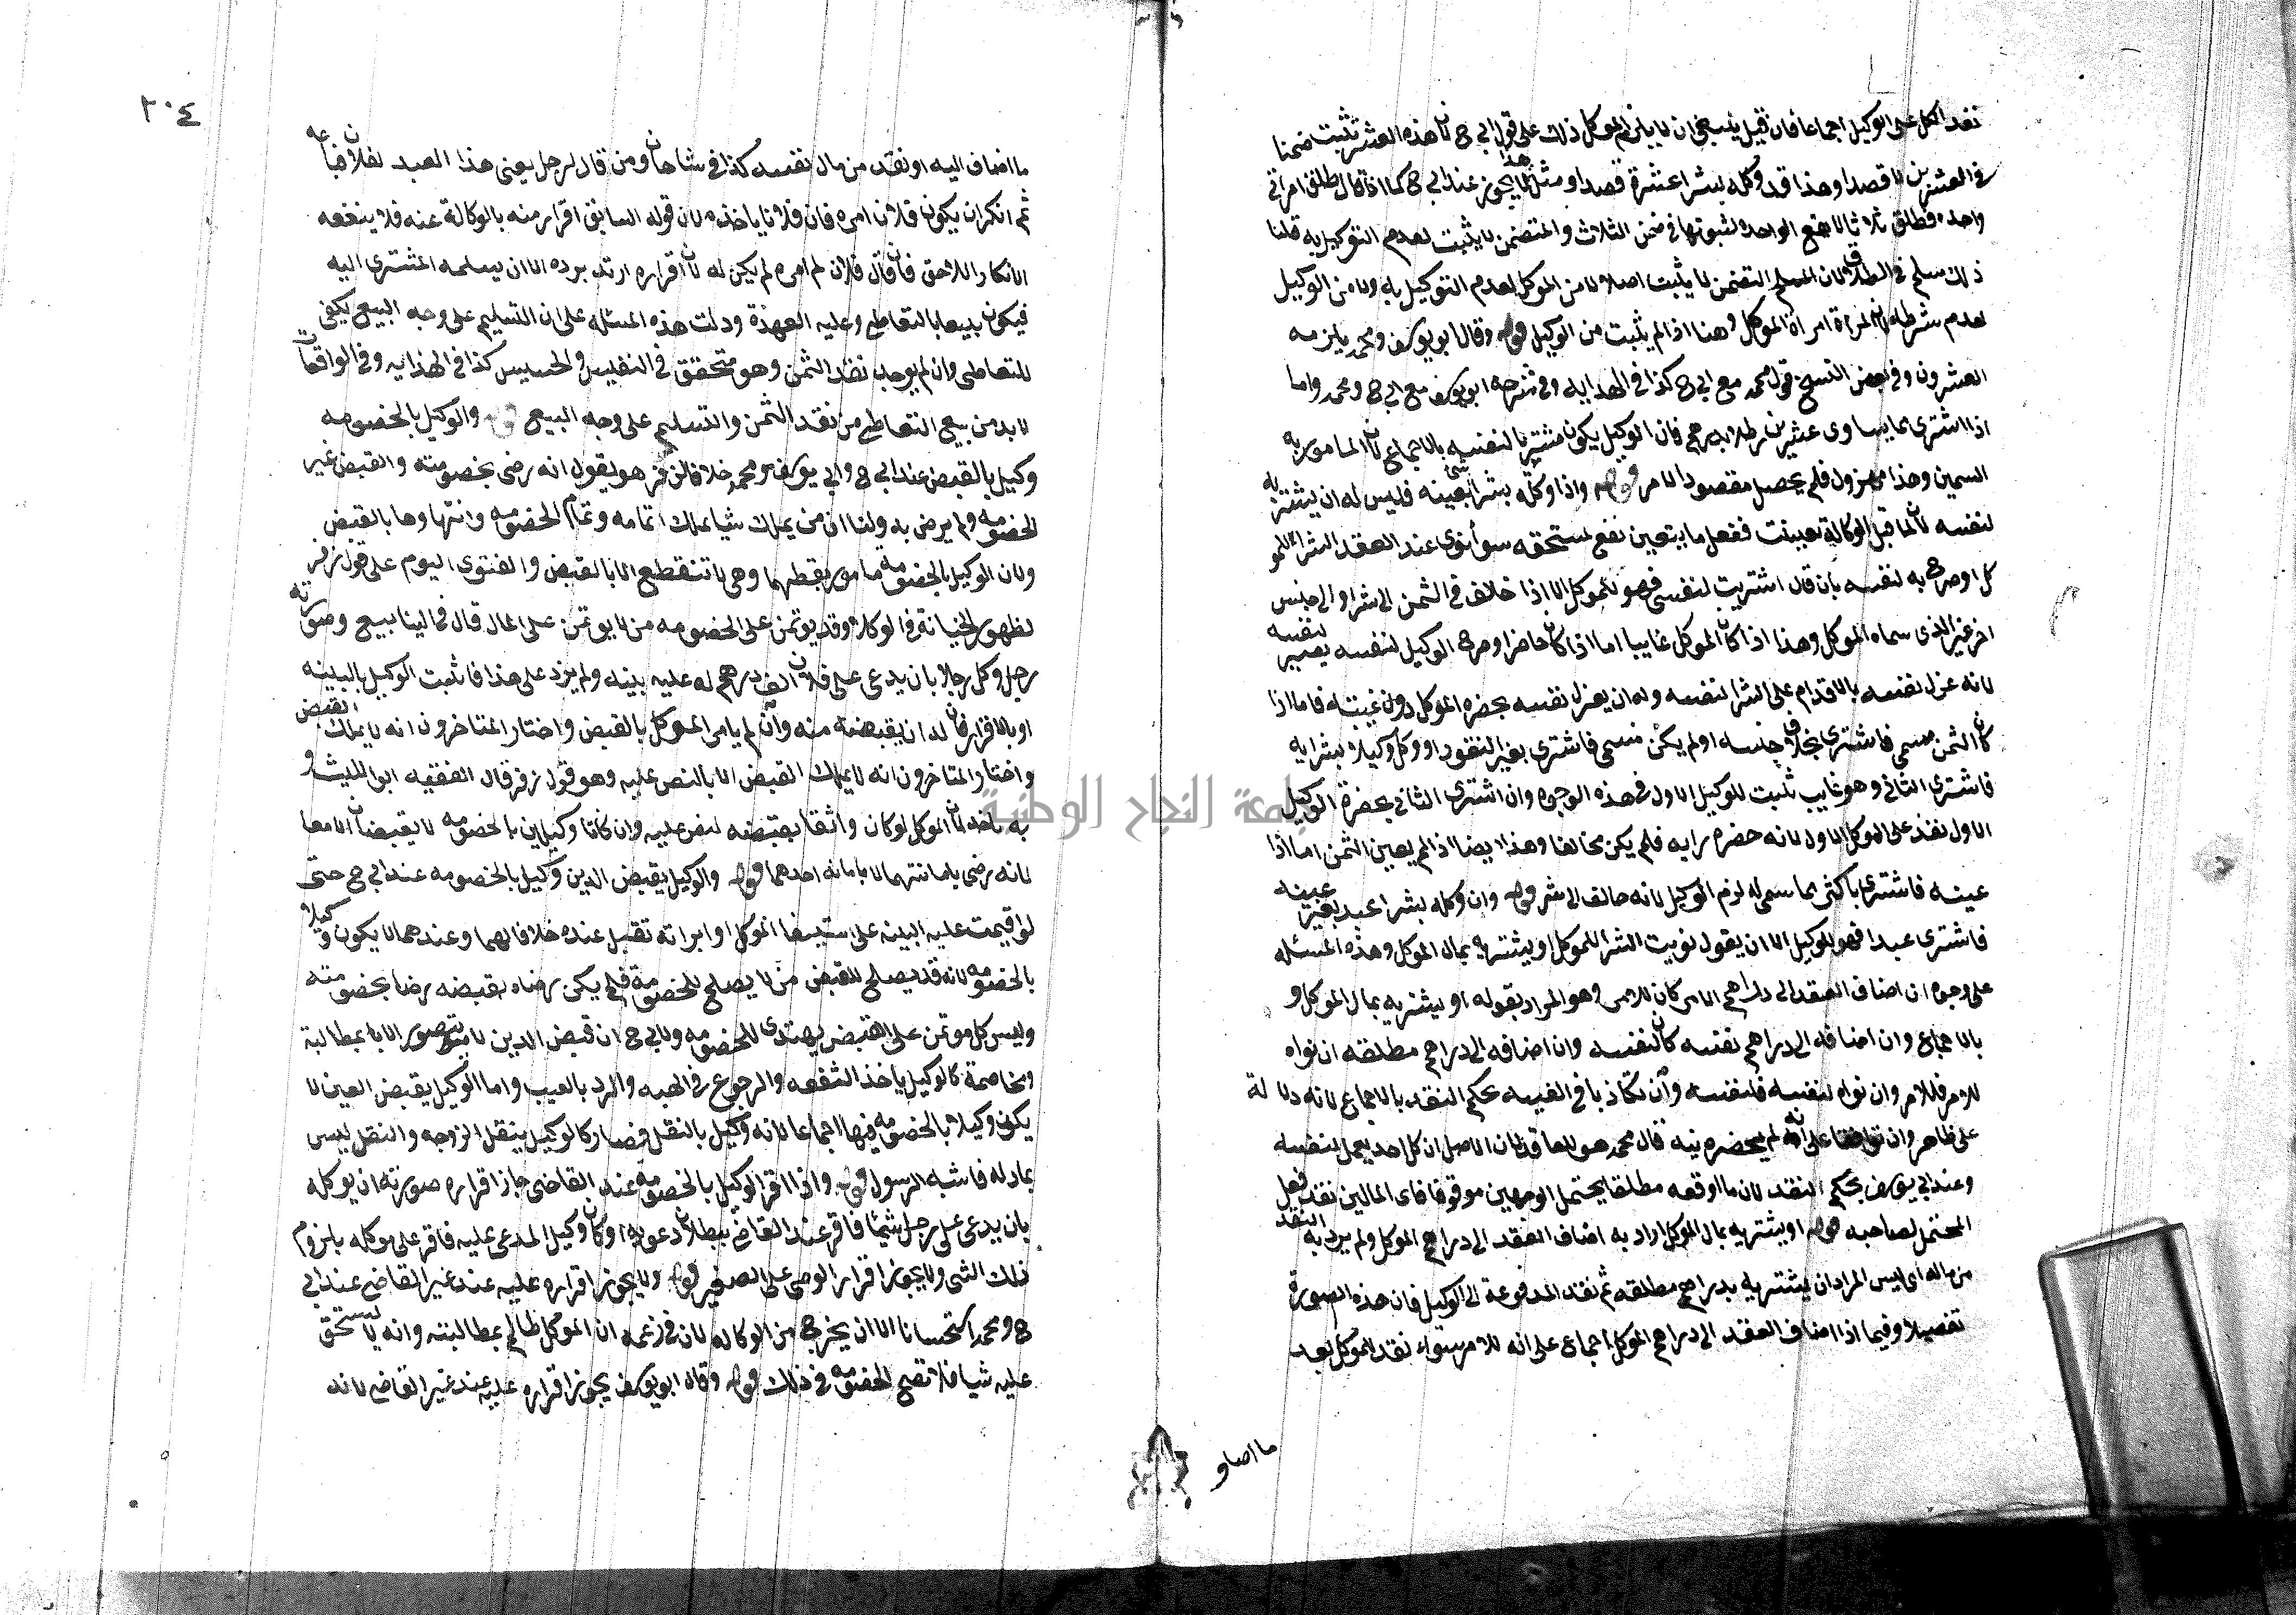 نفذ الكل على الوكيل اجماعا فان قيل ينبغي ان لا يلزم الموكل ذلك على قول ابي ح لان هذه العشرة تثبت ضمنا
في العشرين لا قصدا وهذا قد وكله بشرا عشرة قصدا ومثل هذا لا يجوز عند ابي ح كما اذا قال طلق امراتي
واحده فطلق ثلاثا لا تقع الواحدة لثبوتها في ضمن الثلاث والمتضمن لا يثبت لعدم التوكيل به قلنا
ذلك سلم في الطلاق لان المسلم التضمن لا يثبت اصلا لا من الموكل لعدم التوكيل به ولا من الوكيل
لعدم شرطه لان المراة امراة الموكل وهنا اذا لم يثبت من الوكيل قوله وقال ابو يوسف ومحمد يلزمه
العشرون وفي بعض النسخ قول محمد مع ابي ح كذا في الهدايه وفي شرحه ابو يوسف مع ابي ح ومحمد واما
اذا اشترى بما يساوى عشرين رطلا بدرهم فان الوكيل يكون مشتريا لنفسه بالاجماع لان المامور به
السمين وهذا مهزول فلم يحصل مقصود الامر قوله واذا وكله بشرا شي بعينه فليس له ان يشتريه
لنفسه لانه لما قبل الوكالة تعينت ففعل ما يتعين نفع لمستحقه سوأ نوى عند العقد الشراء للمو
كل او صرح به لنفسه بان قال اشتريت لنفسي فهو للموكل الا اذا خلاف في الثمن الى شرا والى جنس
اخر غير الذى سماه الموكل وهذا اذا كان الموكل غايبا اما اذا كان حاضرا وصرح الوكيل لنفسه يصير لنفسه
لانه عزل نفسه بالاقدام على الشرا لنفسه وله ان يعزل نفسه بحضره الموكل دون غيبته فاما اذا
كان الثمن مسمى فاشترى بخلاف جنسه او لم يكن مسمى فاشترى بغير النقود او وكل وكيلا بشرايه
فاشترى الثاني وهو غايب ثبت للوكيل الاول في هذه الوجوه وان اشترى الثاني بحضرة الوكيل
الاول نفذ على الموكل الاول لانه حضره رايه فلم يكن مخالفا وهذا ايضا اذا لم يعين الثمن اما اذا
عينه فاشترى باكثر مما سمى له لزم الوكيل لانه خالف الى شر قوله وان وكله بشرا عبد بغير عينه
فاشترى عبدا فهو للوكيل الا ان يقول نويت الشرا للموكل او يشتريه بمال الموكل وهذه المسئله
على وجوه ان اضاف العقد الى دراهم الامر كان للامر وهو المراد بقوله او يشتريه بمال الموكل و
بالاجماع وان اضافه الى دراهم نفسه كان لنفسه وان اضافه الى دراهم مطلقه ان نواه
للامر فللامر وان نواه لنفسه فلنفسه وان تكاذبا في النيه يحكم النقد بالاجماع لانه دلالة
على ظاهر وان توافقا على انه لم يحضره نيه قال محمد هو للعاقد لان الاصل ان كل احد يعمل لنفسه
وعند ابي يوسف يحكم النقد لان ما اوقعه مطلقا يحتمل الوجهين موقوفا فاى المالين نقد فعل
المحتمل لصاحبه قوله او يشتريه بمال الموكل اراد به اضاف العقد الى دراهم الموكل ولم يرد به النقد
من ماله اى ليس المراد ان يشتريه بدراهم مطلقه ثم نقد المدفوعة الى الوكيل فان هذه الصورة
تفصيلا وفيما اذا اضاف العقد الى دراهم الموكل اجماع على انه للامر سواء نقد الموكل بعد
ما اضاو
٢٠٤
ما اضاف اليه او نقد من مال نفسه كذا في شاهان ومن قال لرجل بعني هذا العبد لفلان فباعه
ثم انكر ان يكون فلان امره فان فلانا ياخذه لان قوله السابق اقرار منه بالوكالة عنه فلا ينفعه
الانكار اللاحق فان قال فلان لم امره لم يكن له لان اقراره ارتد برده الا ان يسلمه المشترى اليه
فيكون بيعا بالتعاطي وعليه العهدة ودلت هذه المسئله على ان التسليم على وجه البيع يكفي
للتعاطي وان لم يوجد نقد الثمن وهو متحقق في النفيس والخسيس كذا في الهدايه وفي الواقعات
لا بد من بيع التعاطي من نقد الثمن والتسليم على وجه البيع قوله والوكيل بالخصومه
وكيل بالقبض عند ابي ح وابي يوسف ومحمد خلافا لزفر هو يقول انه رضى بخصومته والقبض غير
الخصومه ولم يرض به ولنا ان من يملك شيا يملك اتمامه وتمام الخصومه وانتهاوها بالقبض
ولان الوكيل بالخصومه مامور بقطعها وهى لا تنقطع الا بالقبض والفتوى اليوم على قول زفر
لظهور الخيانة في الوكلا وقد يوتمن على الخصومه من لا يوتمن على المال قال في الينابيع وصورته
رجل وكل رجلا بان يدعى على فلان الف درهم له عليه بينه ولم يزد على هذا فاثبت الوكيل بالبينه
او بالاقرار فان له ان يقبضه منه وان لم يامر الموكل بالقبض واختار المتاخرون انه لا يملك القبض
واختار المتاخرون انه لا يملك القبض الا بالنص عليه وهو قول زفر قال الفقيه ابو الليث و
به ناخذ لان الموكل لو كان واثقا بقبضه لنص عليه وان كانا وكيلين بالخصومه لا يقبضان الا معا
لانه رضى بامانتهما لا بامانه احدهما قوله والوكيل بقبض الدين وكيل بالخصومه عند ابي ح حتى
لو اقيمت عليه البينه على استيفا الموكل او ابراته تقبل عنده خلافا لهما وعندهما لا يكون وكيلا
بالخصومه لانه قد يصلح للقبض من لا يصلح للخصومة فلم يكن رضاه بقبضه رضا بخصومته
وليس كل موتمن على القبض يهتدى للخصومه ولابي ح ان قبض الدين لا يتصور الا بمطالبة
ومخاصمة كالوكيل ياخذ الشفعه والرجوع في الهبه والرد بالعيب واما الوكيل بقبض العين لا
يكون وكيلا بالخصومه فيها اجماعا لانه وكيل بالنقل فصار كالوكيل بنقل الزوجه والنقل ليس
بمادله فاشبه الرسول قوله واذا اقر الوكيل بالخصومه عند القاضى جاز اقراره صورته ان يوكله
بان يدعى على رجل شيئا فاقر عند القاضى ببطلان دعواه او كان وكيل المدعى عليه فاقر على موكله بلزوم
ذلك الشى ولا يجوز اقرار الوصى على الصغير قوله ولا يجوز اقراره عليه عند غير القاضى عند ابي
ح ومحمد استحسانا الا ان يخرج من الوكاله لان في زعمه ان الموكل ظالم بمطالبته وانه لا يستحق
عليه شيا فلا تصح الخصومه في ذلك قوله وقال ابو يوسف يجوز اقراره عليه عند غير القاضى لانه
جامعة النجاح الوطنية